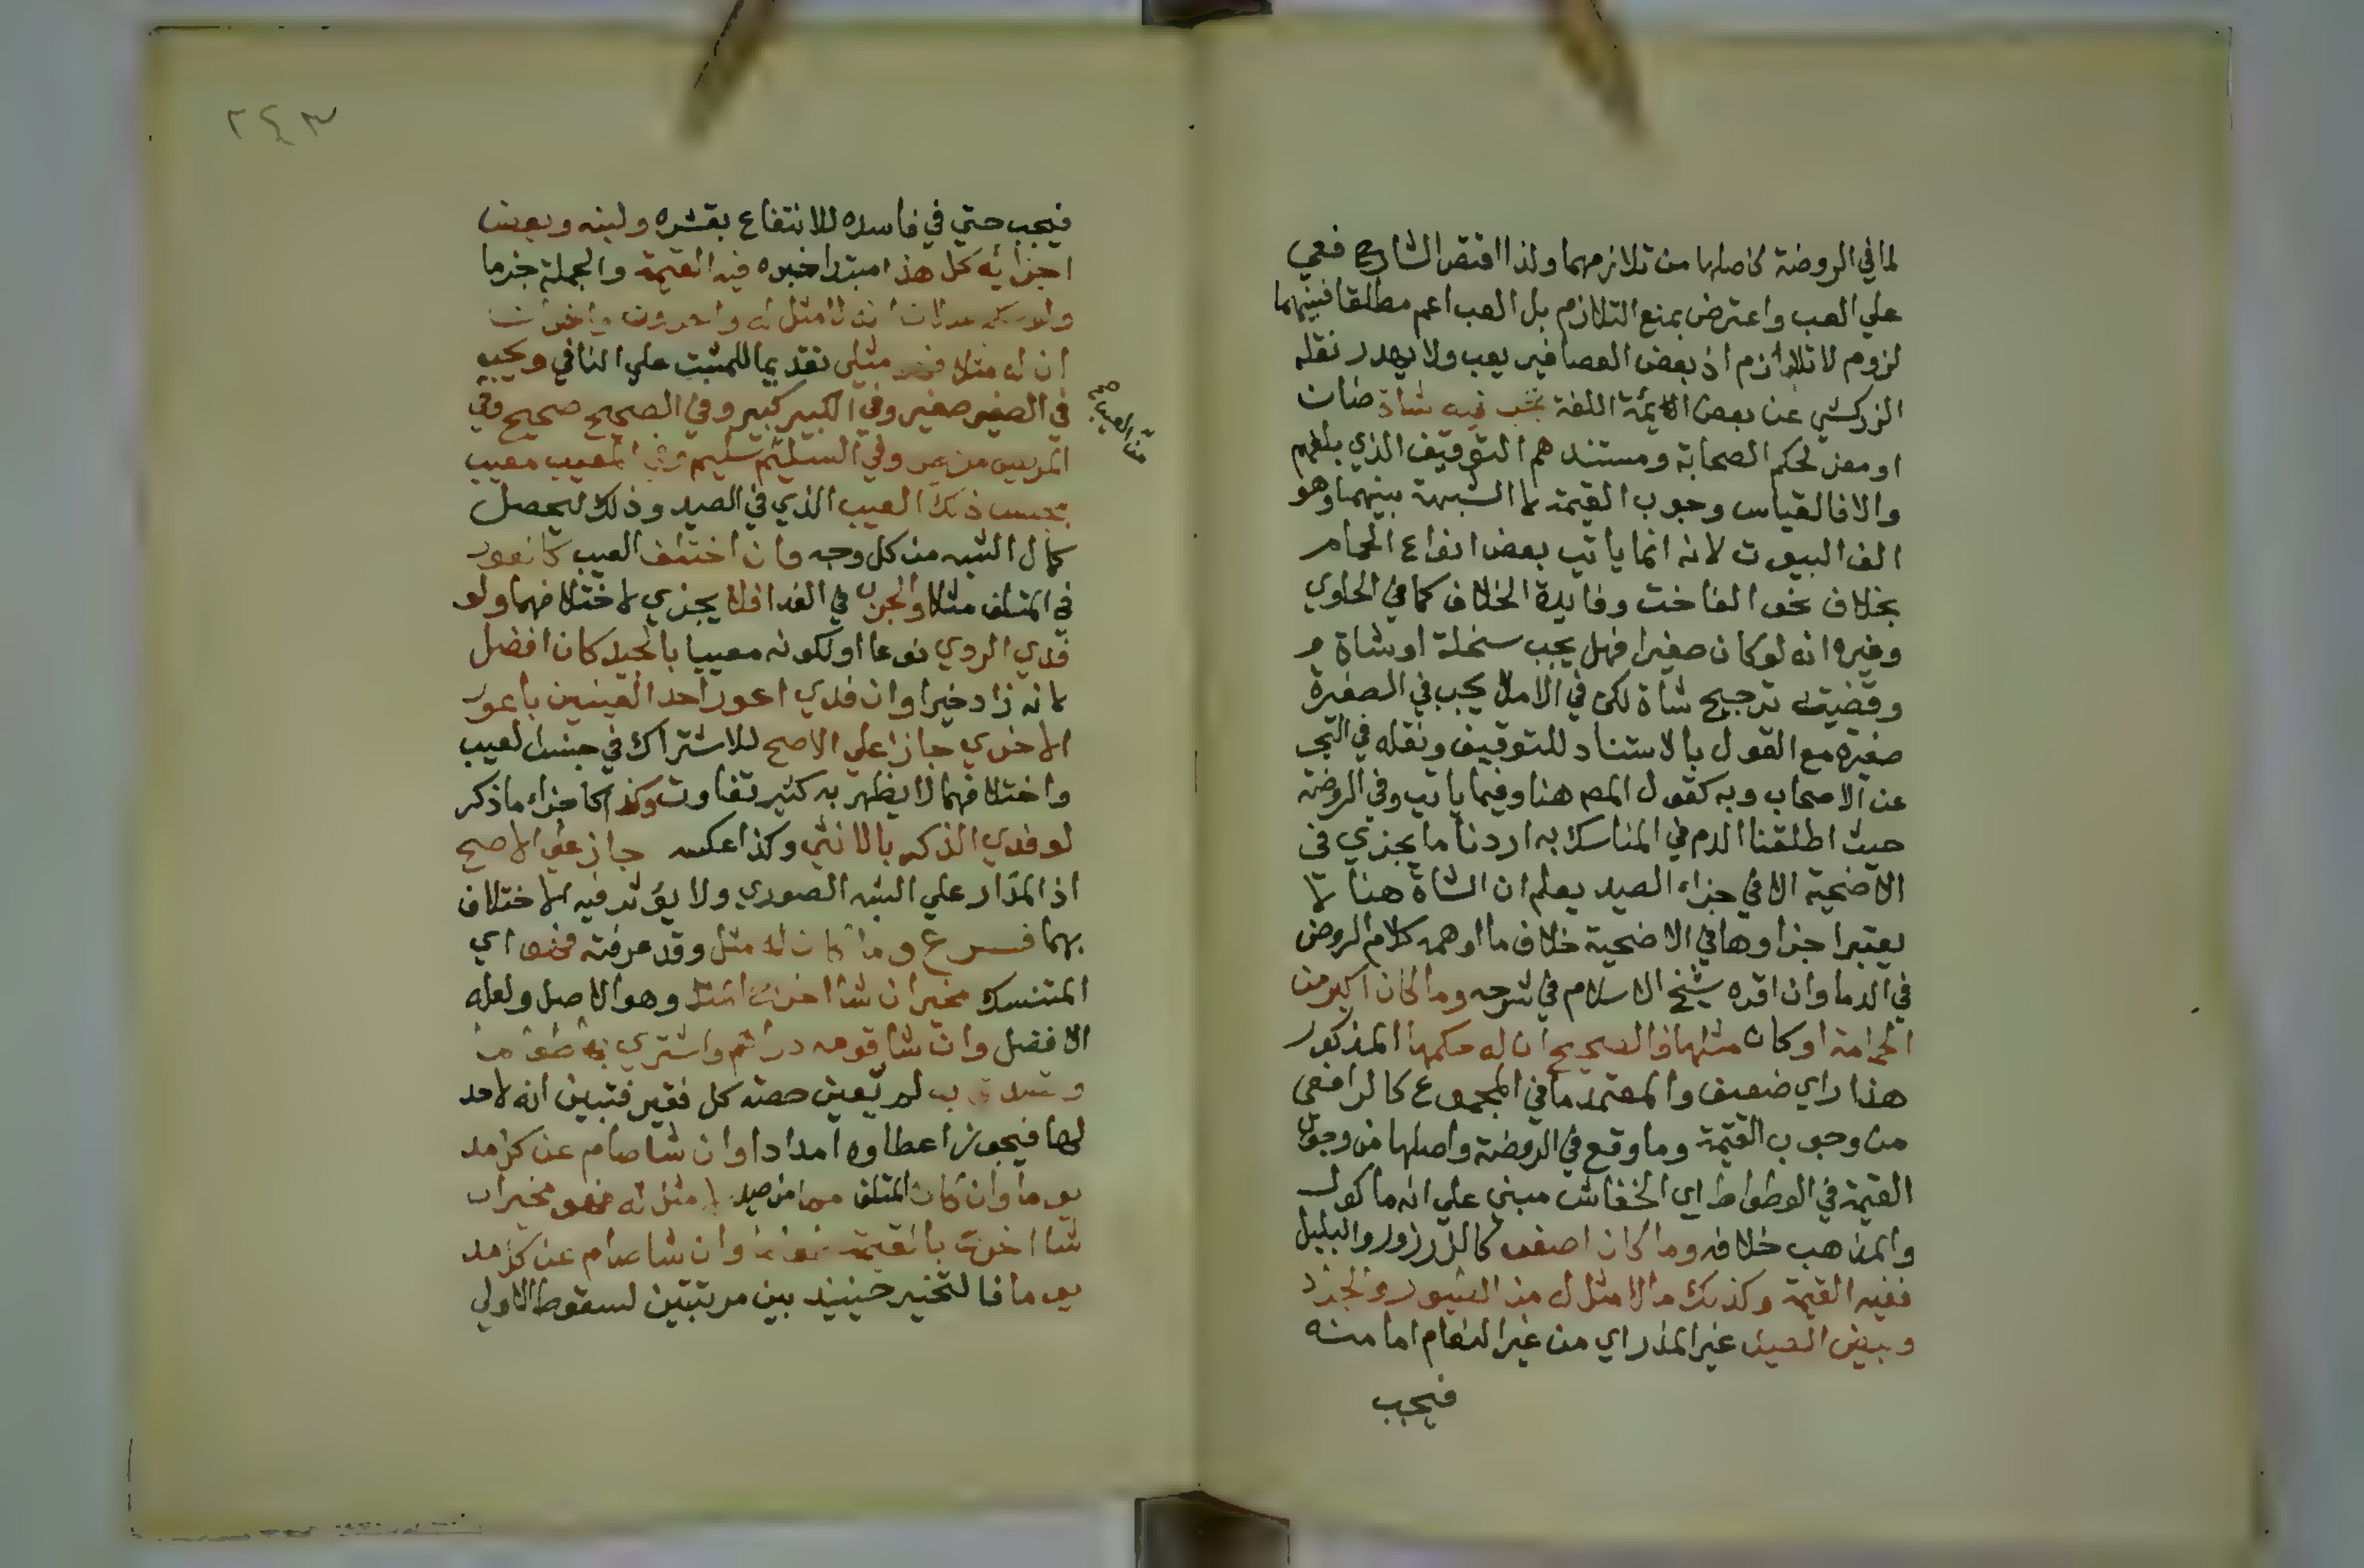 لما في الروضة كاصلها من تلازمهما ولذا اقتصر الشارح فعي
علي العب واعترض بمنع التلازم بل العب اعم مطلقا فبينهما
لزوم لا تلازم اذ بعض العصافير يعب ولا يهدر نقله
الزركشي عن بعض الايمة اللغة تجب فيه شاة ضات
او معز لحكم الصحابة ومستندهم التوقيف الذي بلغهم
والا فالقياس وجوب القيمة لا الشبهة بينهما وهو
الف البيوت لانه انما ياتي بعض انواع الحمام
بخلاف نحو الفاخت وفايدة الخلاف كما في الحاوي
وغيره انه لو كان صغيرا فهل يجب سخلة او شاة م
وقضيته ترجيح شاة لكن في الاملا يجب في الصغيرة
صغيره مع القول بالاستناد للتوقيف ونقله في البحر
عن الاصحاب وبه كقول المص هنا وفيما ياتي وفي الروضة
حيث اطلقنا الدم في المناسك به اردنا ما يجزي في
الاضحية الا في جزاء الصيد يعلم ان الشاة هنا لا
يعتبر اجزاوها في الاضحية خلاف ما اوهمه كلام الروض
في الدما وان اقره شيخ الاسلام في شرحه وما كان اكبر من
الحمامة او كان مثلها فالصحيح ان له حكمها المذكور
هذا راي ضعيف والمعتمد ما في المجموع كالرافعي
من وجوب القيمة وما وقع في الروضة واصلها من وجوب
القيمة في الوطواط اي الخفاش مبني علي انه ماكول
والمذهب خلافه وما كان اصغر كالزرزور والبلبل
ففيه القيمة وكذلك ما لا مثل له من الطيور والجراد
وبيض الصيد غير المذر اي من غير النعام اما منه
فيجب
٢٤٣
فيجب حتي في فاسده للانتفاع بقشره ولبنه وبعض
اجزايه كل هذا مبتدا خبره فيه القيمة والجملة خبر ما
ان له مثلا مثلي تقديما للمثبت علي النافي ويجب
في الصغير صغير وفي الكبير كبير وفي الصحيح صحيح وفي
المريض مريض وفي السليم سليم وفي المعيب معيب
بجنس ذلك العيب الذي في الصيد وذلك ليحصل
كمال الشبه من كل وجه وان اختلف العيب كالعور
في المتلف مثلا والجرب في الفدا فلا يجزي لاختلافهما ولو
فدي الردي نوعا او لكونه معيبا بالجيد كان افضل
لانه زاد خيرا وان فدي اعور احد العينين باعور
الاخري جاز علي الاصح للاشتراك في جنس العيب
واختلافهما لا يظهر به كثير تفاوت وكذا كاجزاء ما ذكر
لو فدي الذكر بالانثي وكذا عكسه جاز علي الاصح
اذ المدار علي الشبه الصوري ولا يؤثر فيه الاختلاف
بهما فرع وما كان له مثل وقد عرفته فهو اي
المتنسك مخير ان شا اخرج المثل وهو الاصل ولعله
الافضل وان شا قومه دراهم واشتري به طعاما
لم تعين حصته كل فقير فتبين انه لا حد
لها فيجوز اعطاوه امدادا وان شا صام عن كل مد
يوما وان كان المتلف مما من صيد لا مثل له فهو مخير ان
شا اخرج بالقيمة طعاما وان شا صام عن كل مد
يوما فالتخير حينيذ بين مرتبتين لسقوط الاولي